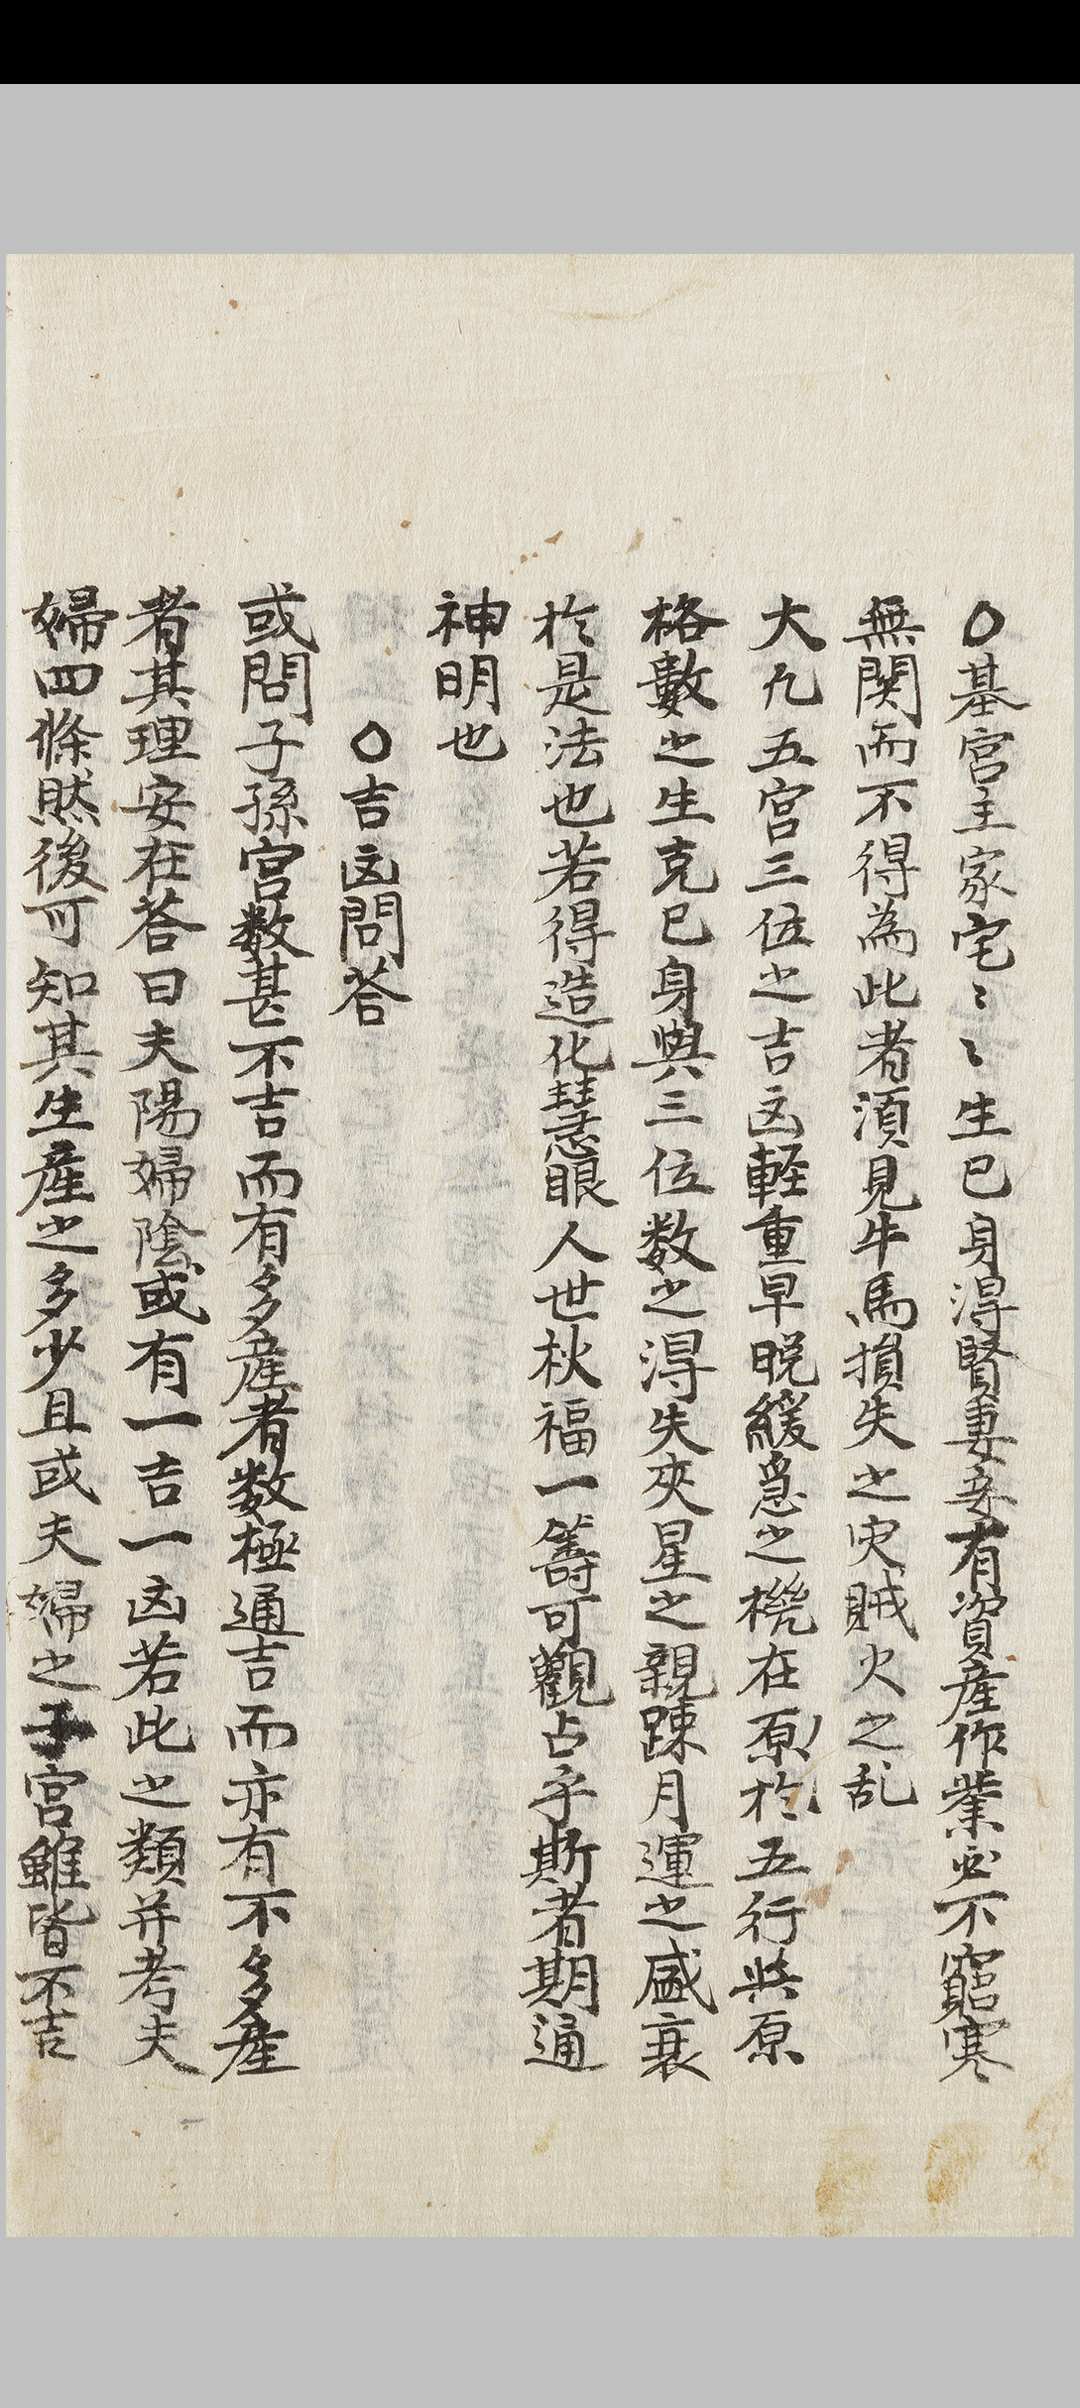 〇基宮主家宅〻〻生已身得賢妻妾有資産作業必不窮寒
無関而不得為此者須見牛馬損失之灾賊火之乱
大凡五宮三位之吉凶輕重早晩緩急之機在原於五行与原
格數之生克已身與三位数之得失夾星之親踈月運之盛衰
於是法也若得造化慧眼人世秋福一籌可觀占乎斯者期通
神明也
〇吉凶問荅
或問子孫宮数甚不吉而有多産者数極通吉而亦有不多産
者其理安在荅曰夫陽婦陰或有一吉一凶若此之類并考夫
婦四條然後可知其生産之多少且或夫婦之子宮雖皆不吉